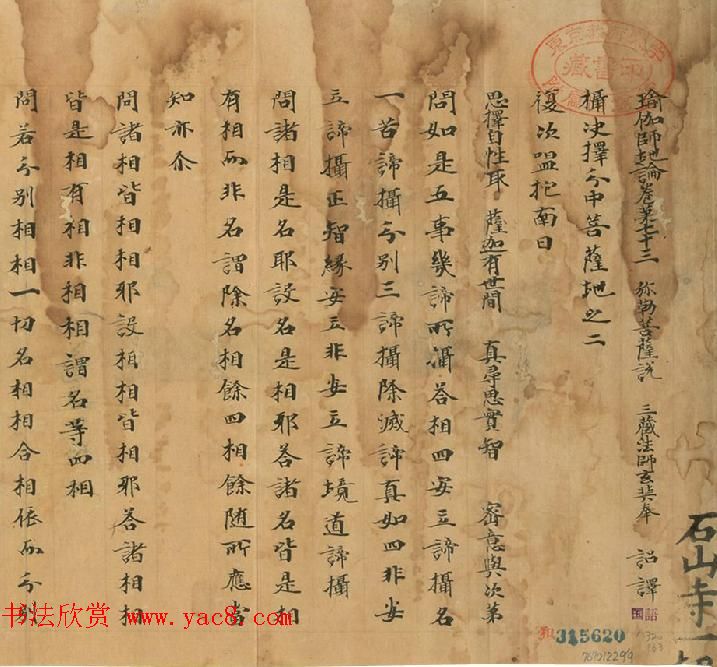 瑜伽師地論卷第七十三 弥勒菩薩説 三藏法師玄奘奉 詔譯
攝決擇分中菩薩地之二
復次嗢拕南曰
思擇自性取 薩迦有世間 真尋思實智 密意與次第
問如是五事幾諦所攝答相四安立諦攝名
一苦諦攝分別三諦攝除滅諦真如四非安
立諦攝正智緣安立非安立諦境道諦攝
問諸相是名耶設名是相耶答諸名皆是相
有相而非名謂除名相餘四相餘随所應當
知亦尒
問諸相皆相相耶設相相皆相耶答諸相相
皆是相有相非相相謂名等四相
問若分別相相一切名相相合相依而分別
石山寺一切
東京 藏書印
315620
769012299
320
163
书法欣赏 www.yac8.com